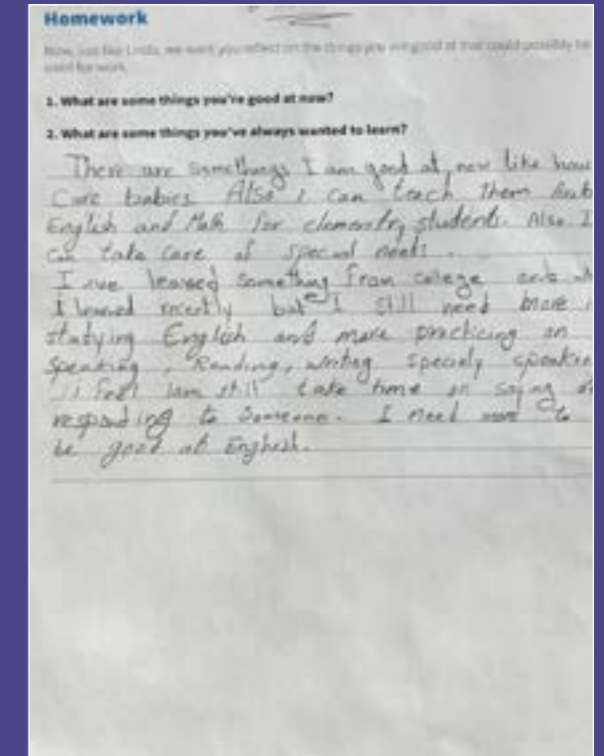 Homework
Now, just like Linda, we want you reflect on the things you are good at that could possibly be
used for work.
1. What are some things you're good at now?
2. What are some things you've always wanted to learn?
There are somethings I am good at, now like how
Care babies Also I can teach them
English and Math for elementry students. Also I
Can take care of special needs.
I ave learned something from college
I learned recently but I still need more
studying English and more practicing on
Speaking, Reading, writing specialy
I feel Iam still take time on saying
responding to Someone. I need more to
be good at English.